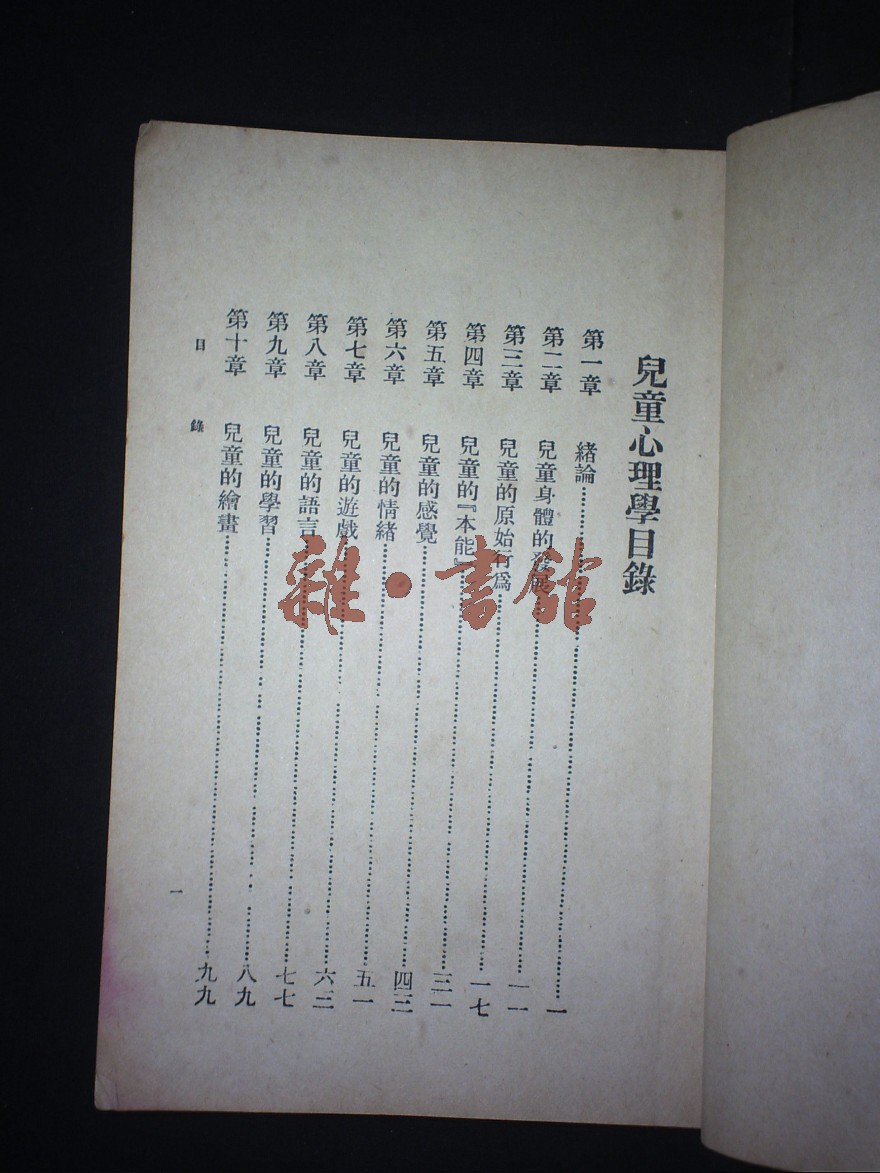 兒童心理學目錄
第一章 緒論……一
第二章 兒童身體的發展……一一
第三章 兒童的原始行爲……一七
第四章 兒童的『本能』……三一
第五章 兒童的感覺……四三
第六章 兒童的情緒……五一
第七章 兒童的遊戲……六三
第八章 兒童的語言……七七
第九章 兒童的學習……八九
第十章 兒童的繪畫……九九
目錄 一
雜·書館